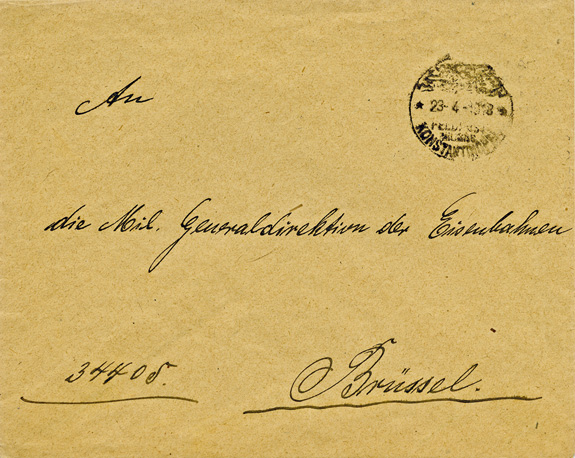 An
* 23-4-1918 *
FELDPOST
KONSTANTINOPEL
die Mil. Generaldirektion der Eisenbahnen
34408.
Brüssel.